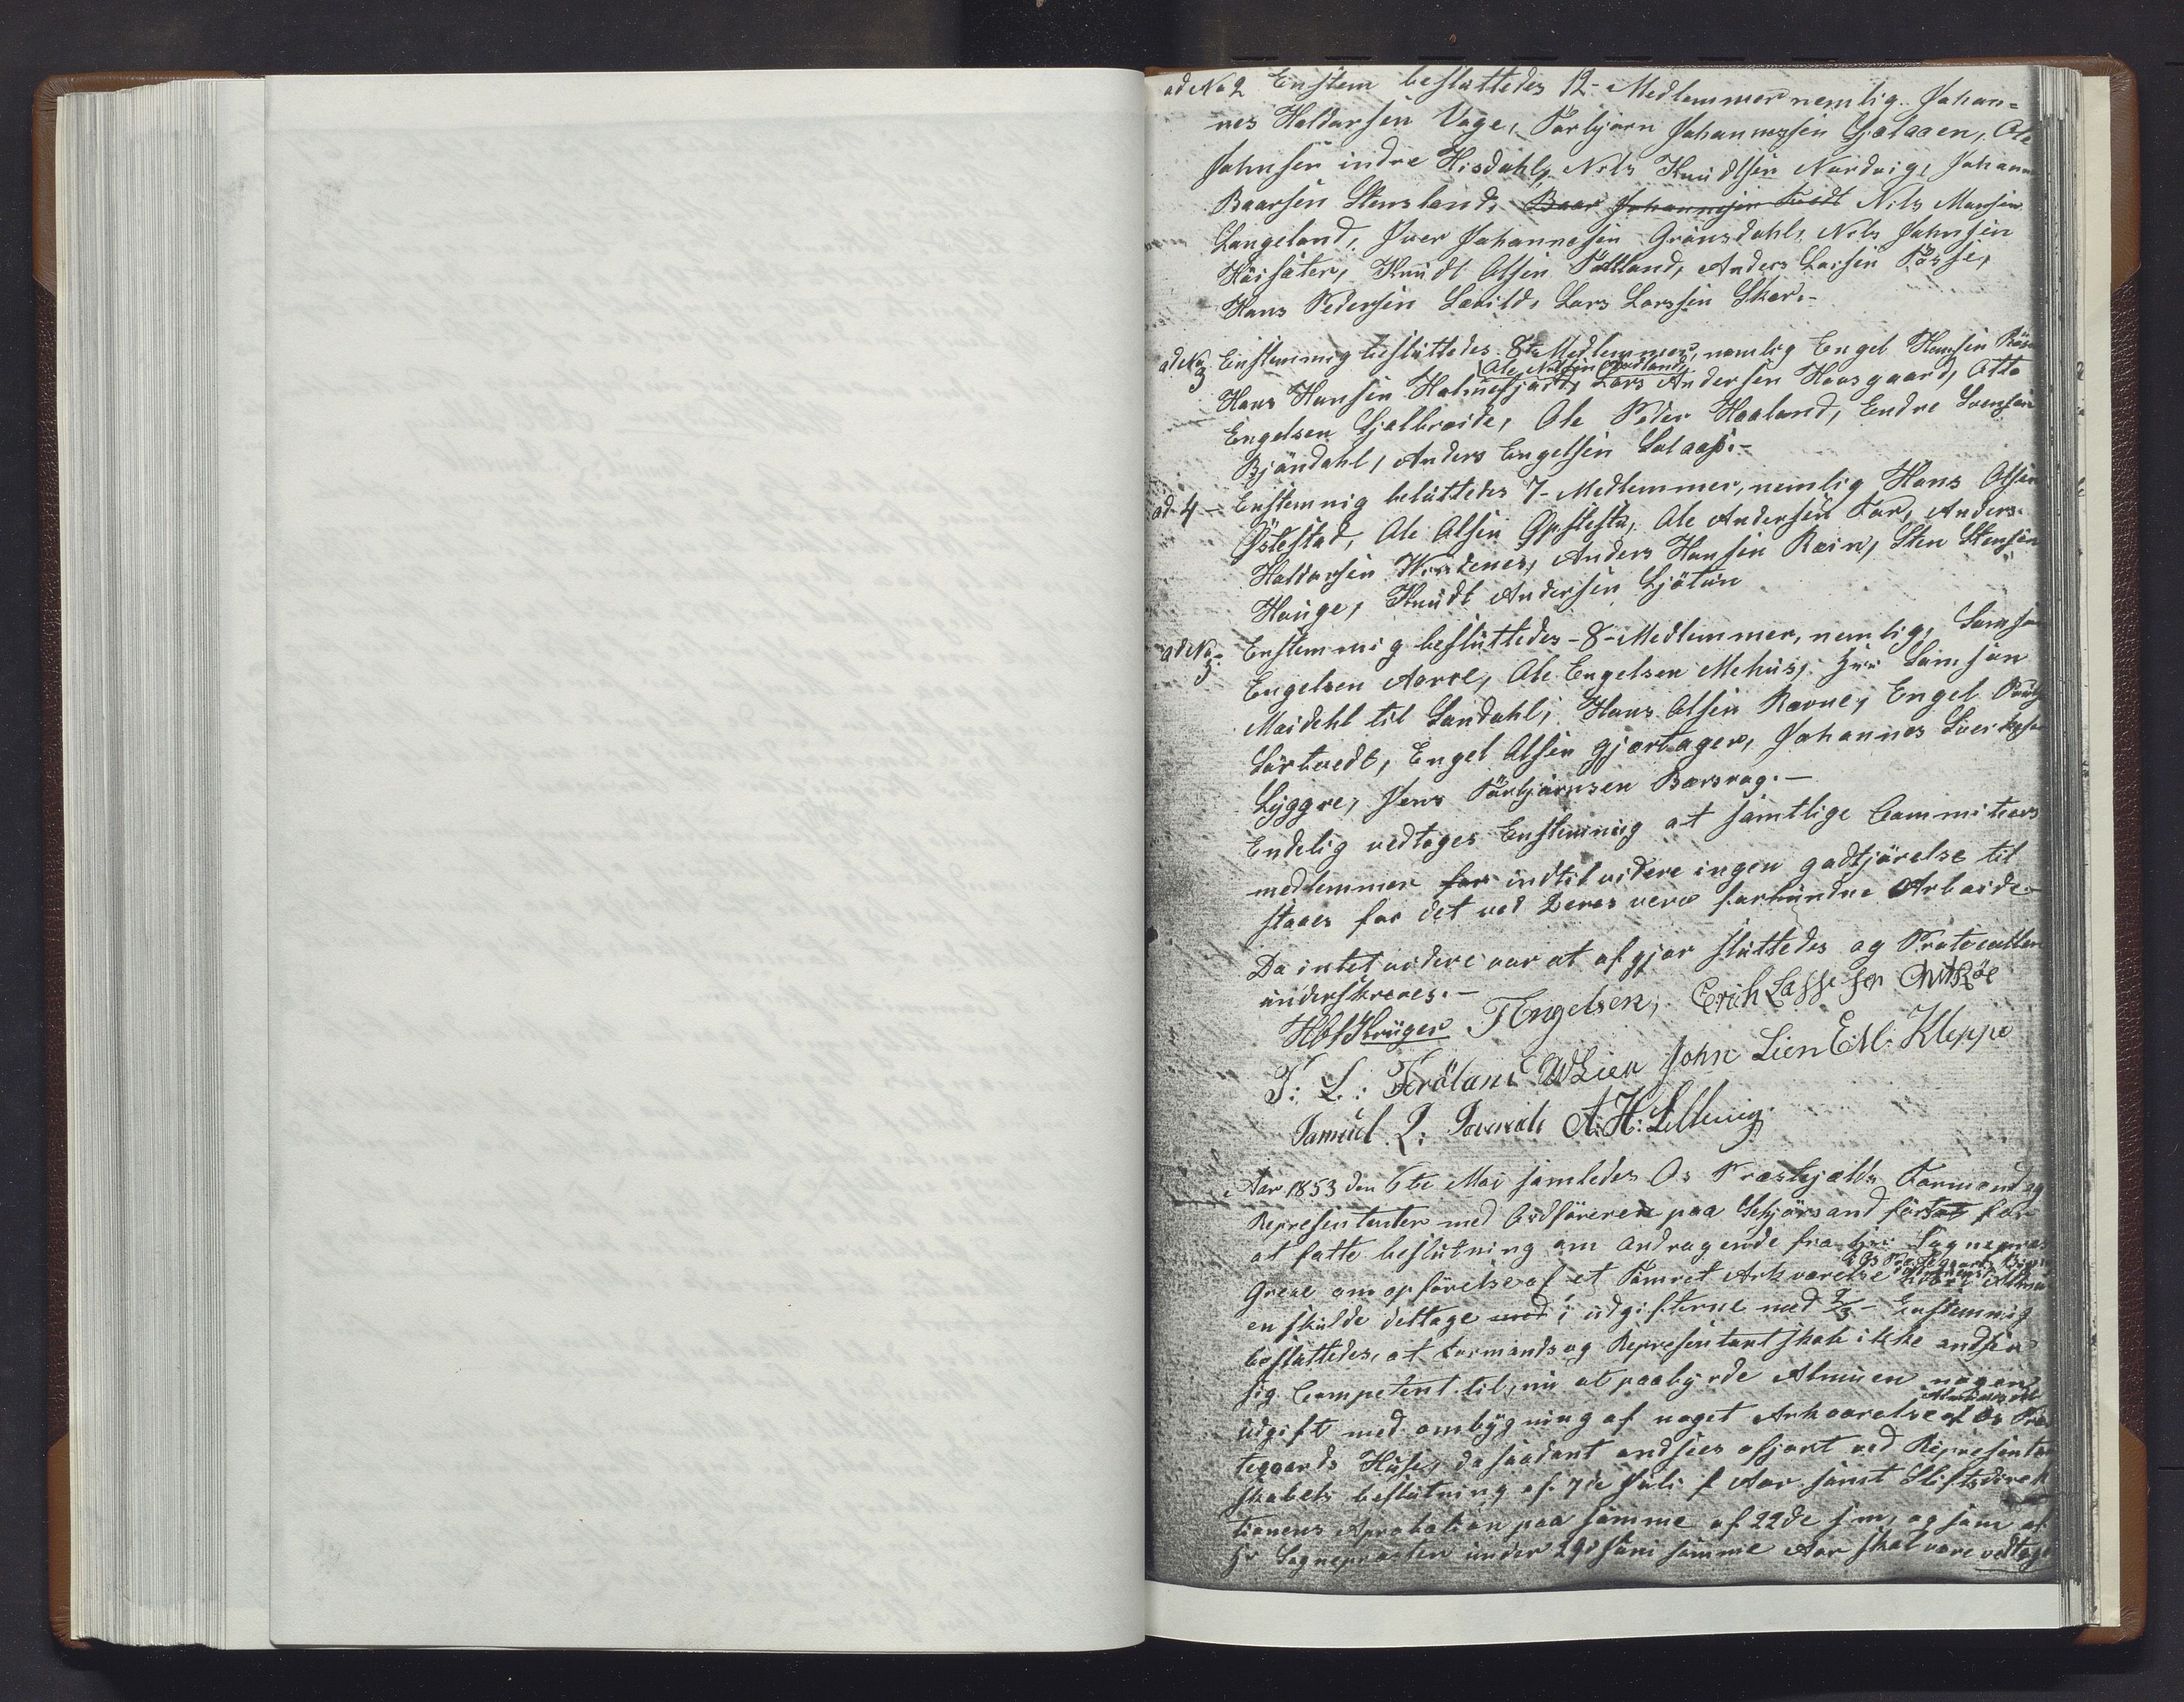 ad No 2 Enstem besluttedes 12- Medlemmer nemlig Johan=
nes Haldorsen Vage, Torbjørn Johannessen Gjelaaen, Ole
Johnsen indre Hisdahl, Nils Knudtsen Nordvig, Johann
Baarsen Stensland, Baar Johannesen Tvedt Nils Monsen
Langeland, Iver Johannesen Grönsdahl, Nils Johnsen
Höisæter, Knudt Olsen Tøttland, Anders Larsen Tösse,
Hans Pedersen Lavild, Lars Larssen Skar.-
ad No 3 Enstemmig besluttedes 8te Medlemmer, nemlig Engel Hansen
Ole Nilsen
Hans Hansen Holmefjord, Lars Andersen Hoasgaard, Otto
Engelsen Gjelbreide, Ole Peder Haaland, Endre Svensen
Bjöndahl, Anders Engelsen
ad 4 - Enstemmig beluttedes 7- Medlemmer, nemlig Hans Olsen
Östestad, Ole Olsen Opstestu, Ole Andersen Tor, Anders
Haldorsen Anders Hansen Røin, Sten Stensen
Hauge, Knudt Andersen Ljötun
ad No 5 Enstemmig besluttedes -8- Medlemmer, nemlig, Samson
Engelsen Aarre, Ole Engelsen Mehus, Hrr Samson
Maidehl til Sandahl, Hans Olsen Ravne, Engel
Sörtvedt, Engel Olsen Gjertager, Johannes
Lyggre, Jens Törbjörnsen Bersvag.-
Endelig vedtoges Enstemmig at samtlige Committees
medlemmer for indtil videre ingen godtjörelse til
staaes for det ved Deres verv forbundne Arbeide-
Da intet videre var at afgjör sluttedes og Protocollen
underskreves.-
Krüger T Engelsen, Erich Lassesen
T: L: Fröland W Lien John Lien E. M. Kleppe
Samuel L: A: H: Lillevig
Aar 1853 den 6te Mai samledes Os Præstegjelds Formænd og
Represententer med Ordföreren paa Schjörsand for at for
at fatte beslutning om andragende fra Hrr Sognepræst
Greve om opförelse af et Tömret Arkværelse
en skulde deltage med i udgifterne med 2/3- Enstemmig
besluttedes, at Formands og Representantskab ikke andseer
sig Competent til, nu at paabyrde Almuen nogen
udgift med ombygning af noget Arkværelse af Os Præs
tegaards Huse, da saadant andsees afjort ved Representan
skabets beslutning af 7de Juli f Aar samt Stiftsdirek
tionens Aprobation paa samme af 22de s m, og som af
Hr Sognepræsten under 29d Juni samme Aar skal være vedtage